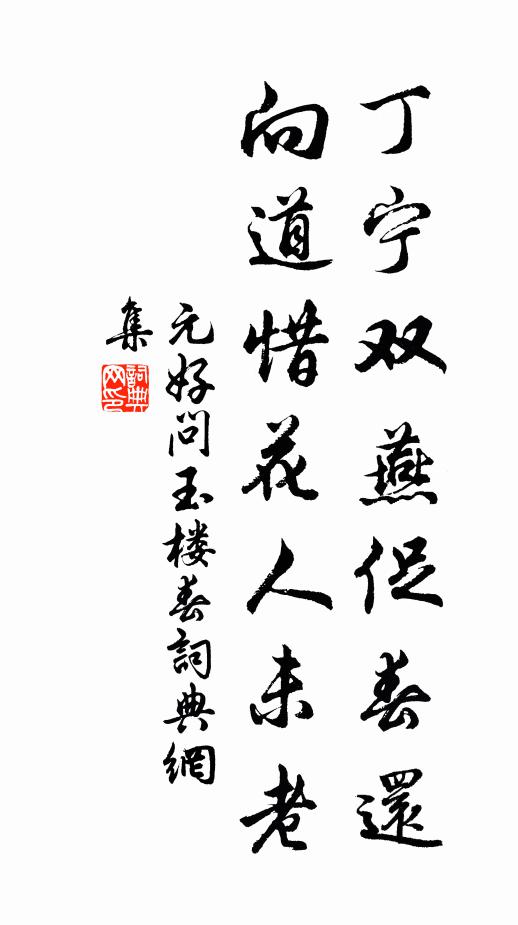 丁宁双燕促春還
向道惜花人未老
元好问玉楼春詞典網
集
詞典网印